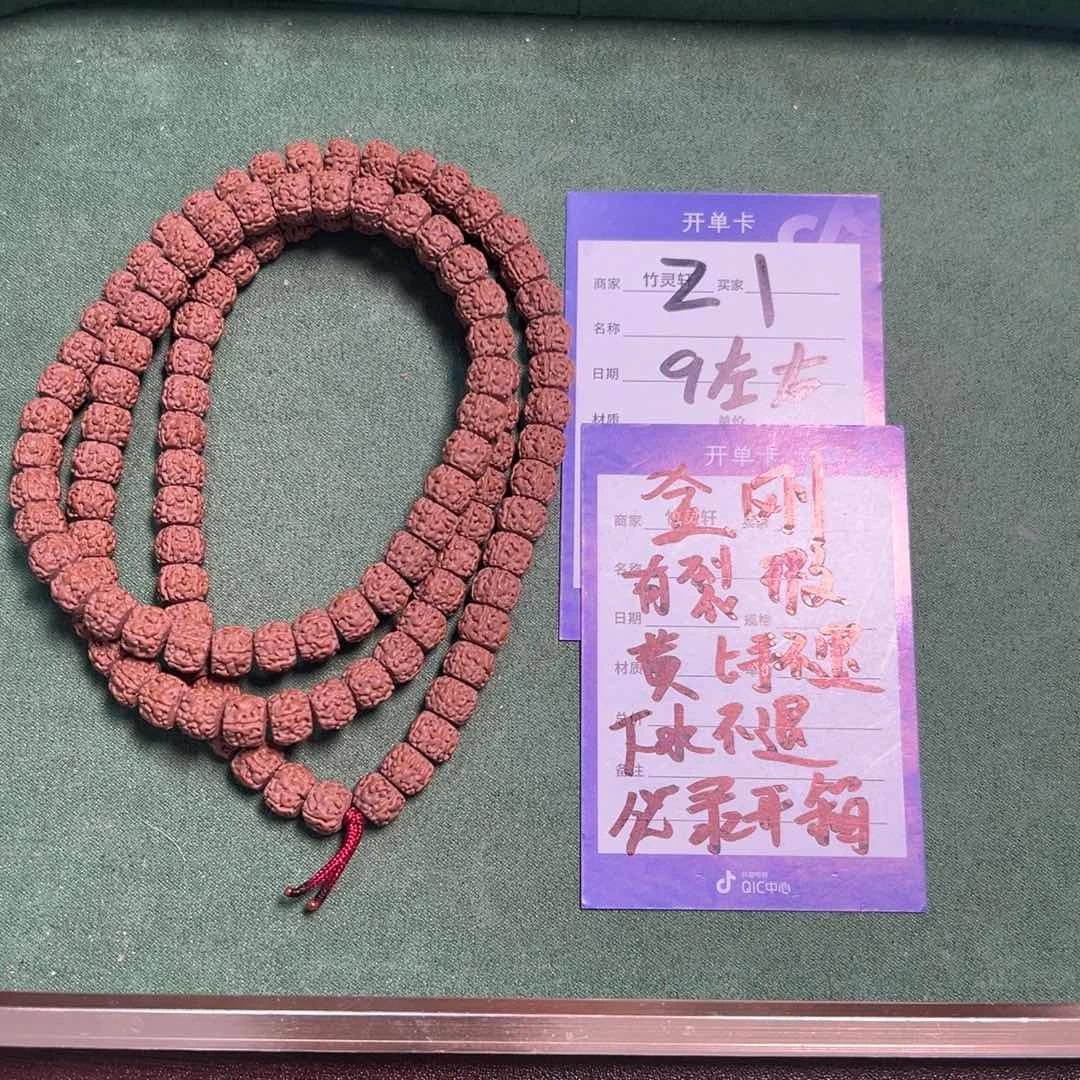 开单卡
商家 竹灵轩 买家
Z1
名称
日期
9左右
材质 单价
开单卡
金刚
商家 竹灵轩 买家
有裂 假
名称
日期 规格
黄 上手不退
材质
下水不退
总价
备注
必录开箱
抖音电商
QIC中心